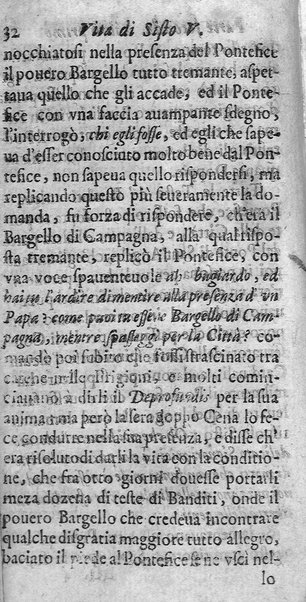 32 Vita di Sisto V.
nocchiatosi nella presenza del Pontefice
il pouero Bargello tutto tremante, aspet-
taua quello che gli accade, ed il Ponte-
fice con vna faccia auampante sdegno,
l'interrogò, chi egli fosse, ed egli che sape-
ua d'esser conosciuto molto bene dal Pon-
tefice, non sapeua quello rispondersi, ma
replicando questo più seueramente la do-
manda, fu forza di rispondere, ch'era il
Bargello di Campagna, alla qual rispo-
sta tremante, replicò il Pontefice, con
vna voce spauenteuole ah bugiardo, ed
hai tu l'ardire di mentire alla presenza d'vn
Papa? come puoi tu essere Bargello di Cam-
pagna, mentre spasseggi per la Città? co-
mandò poi subito che fosse strascinato tra
carche nelle Prigioni, e molti comin-
ciauano a dirli il Deprofundis per la sua
anima ma però la sera doppo Cena lo fe-
ce condurre nella sua presenza, e disse ch'
era risoluto di darli la vita con la conditio-
ne, che fra otto giorni douesse portarli
meza dozena di teste di Banditi, onde il
pouero Bargello che credeua incontrare
qualche disgratia maggiore tutto allegro,
baciato il piede al Pontefice se ne vscì nel-
lo